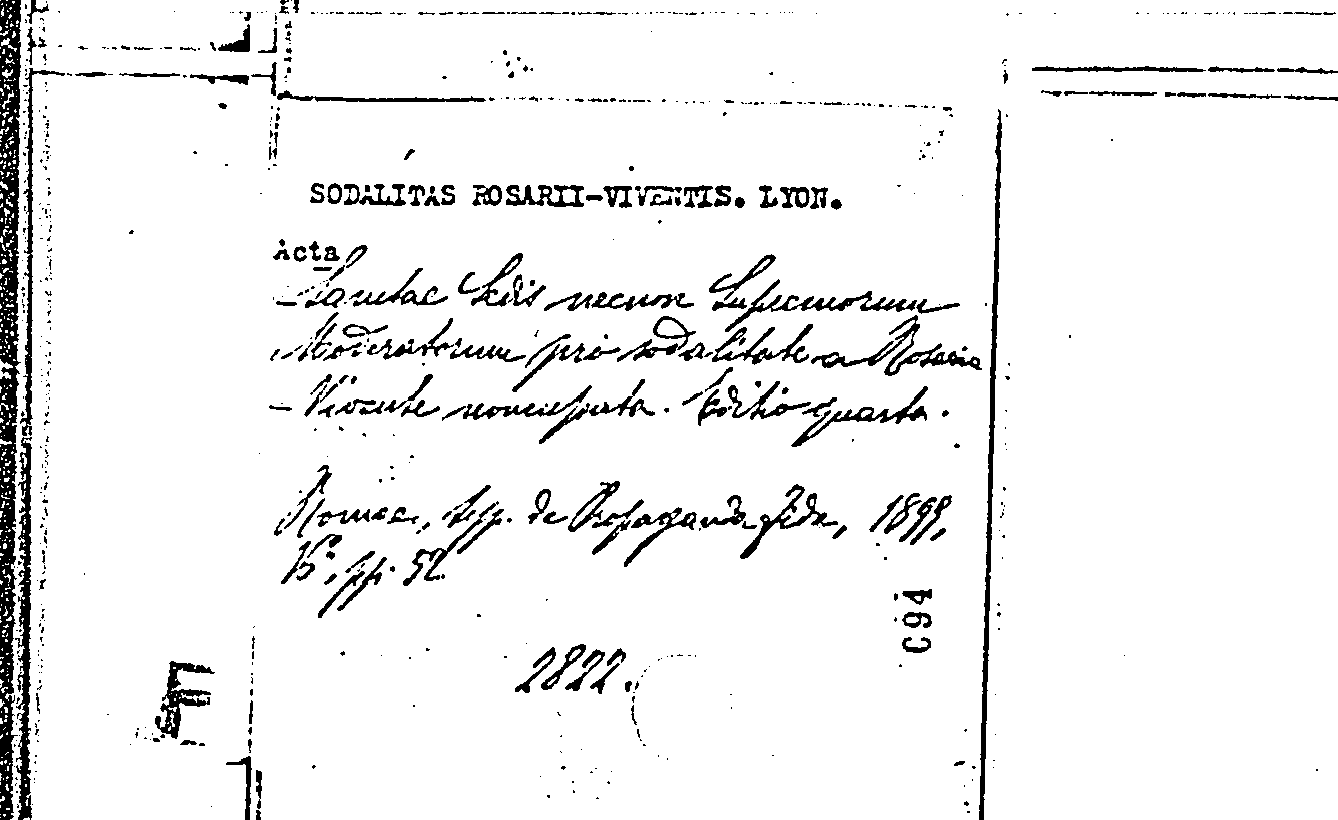 SODALITAS ROSARII-VIVENTIS. LYON.
Acta
Sanctae Sedis necnon Supremorum
Moderatorum pro sodalitate a Rosario
-Vivente nuncupata. Editio quarta.
Romae, typ. de Propaganda Fide, 1899,
pp. 52.
C94
2822.